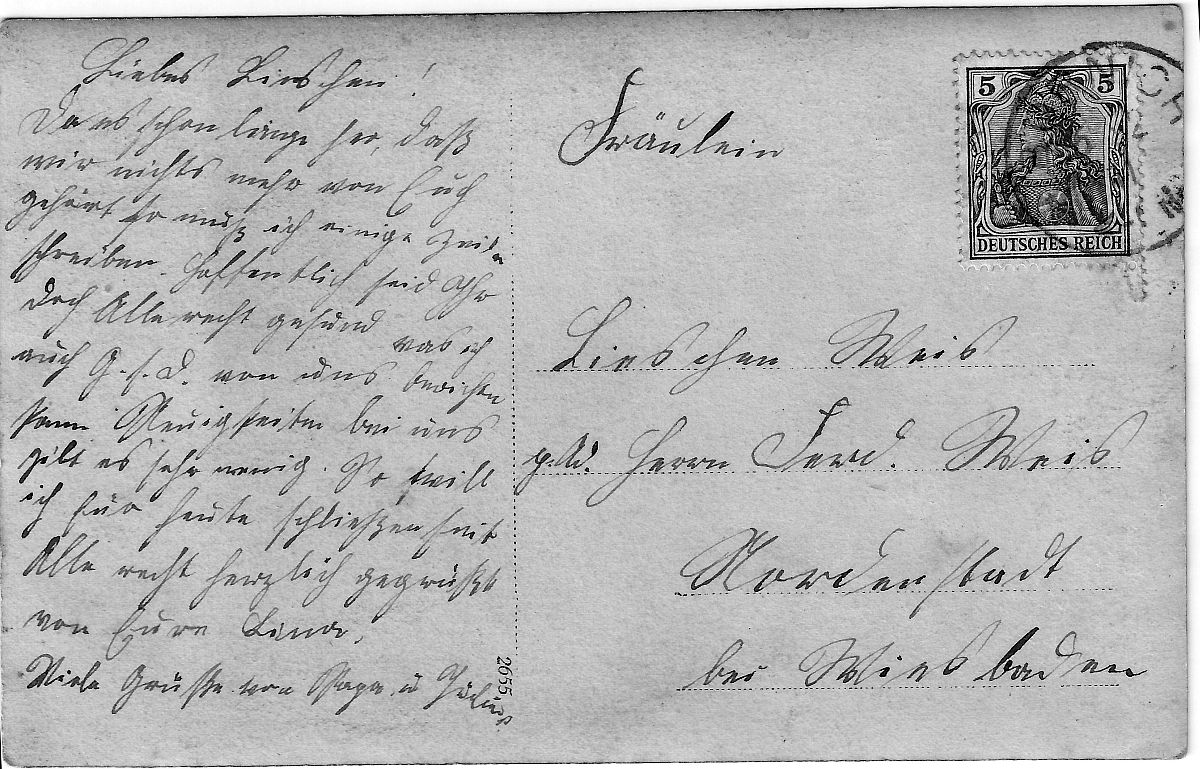 Liebes Lieschen!
Da es schon lange her, daß
wir nichts mehr von Euch
gehört so muß ich einige Zeiln
schreiben. Hoffentlich seid Ihr
doch Alle recht gesund was ich
auch G. s. D. von uns berichten
kann Neuigkeiten bei uns
gibt es sehr wenig. So will
ich für heute schließen seit
Alle recht herzlich gegrüßt
von Eure Lina.
Viele Grüße von Papa u Julius
2655
Fräulein
Lieschen Weis
p. Ad. Herrn Ferd. Weis
Nordenstadt
bei Wiesbaden
5 5
DEUTSCHES REICH